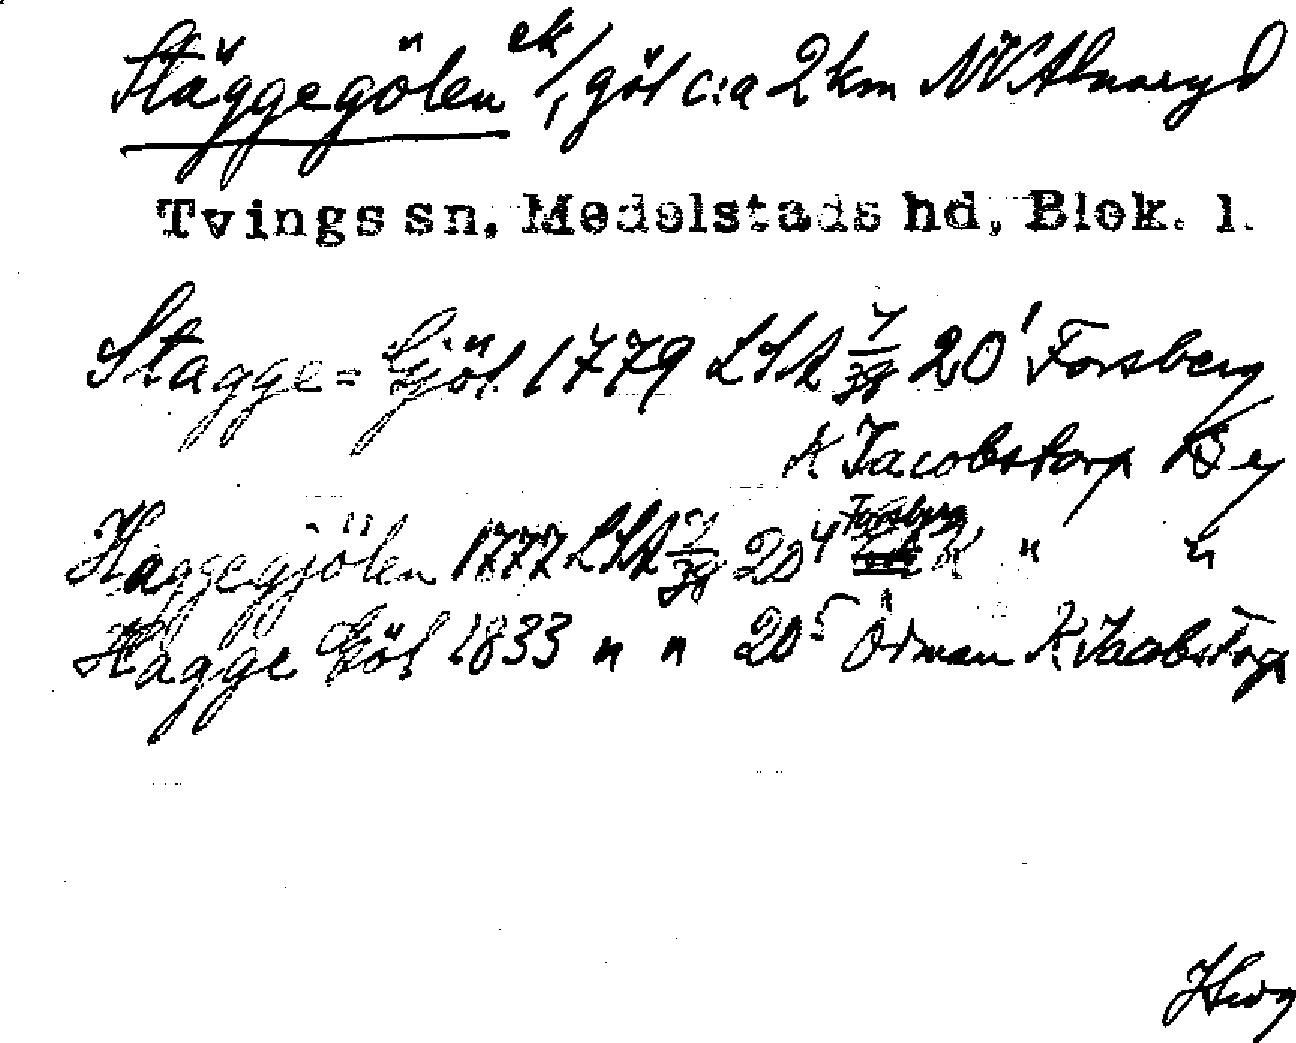 Stäggegölen ek/, göl c:a 2 km NV Alnaryd
Tvings sn, Medelstads hd, Blek. l.
Stagge= Gjöl 1779 LSA 7/39 20¹ Forsberg
K Jacobstorp By
Häggegjölen 1777 LSA 7/39 20⁴ Forsberg K " "
Hägge Göl 1833 " " 20⁵ Ödman K Jacobstorp